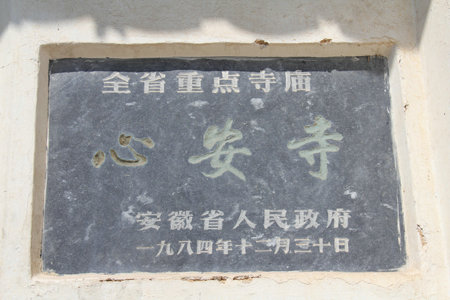 全省重点寺庙
心安寺
安徽省人民政府
一九八四年十二月三十日